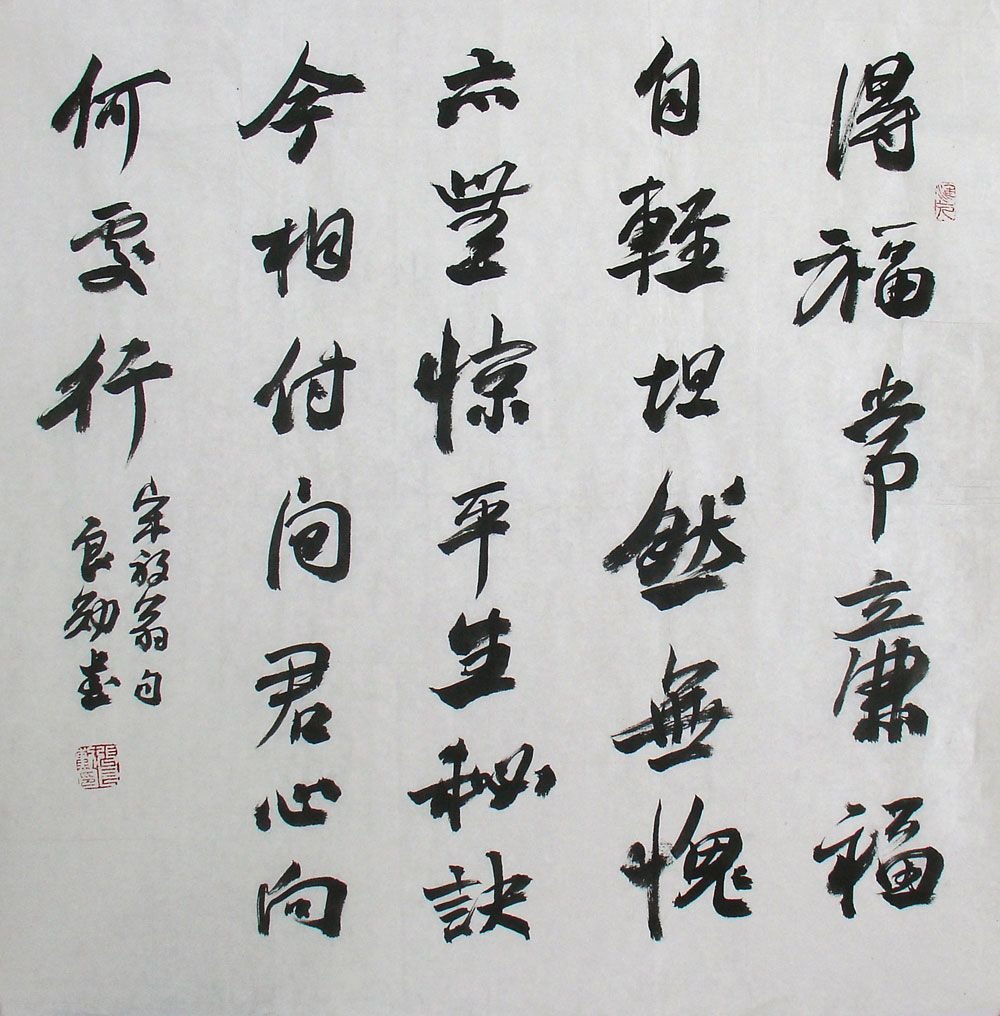 得福常廉福
自輕坦然無愧
亦無惊平生秘訣
今相付问君心向
何處行
宋放翁句
良勋書